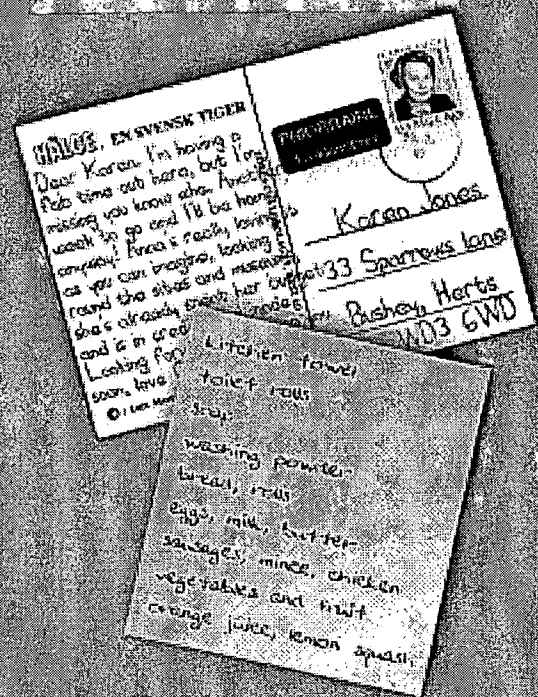 EN SVENSK TIGER
Dear Karen, I'm having a
fab time out here, but I'm
missing you know who. Another
week to go and I'll be home
Anna's really loving
as you can imagine, looking
round the sites and
she's already spent her budget
and is in
Looking for
soon, love
Karen Jones
33 Sparrows Lane
Bushey, Herts
WD3 6WD
kitchen towel
toilet rolls
soap
washing powder
bread, rolls
eggs, milk, butter
sausages, mince, chicken
vegetables and fruit
orange juice, lemon squash